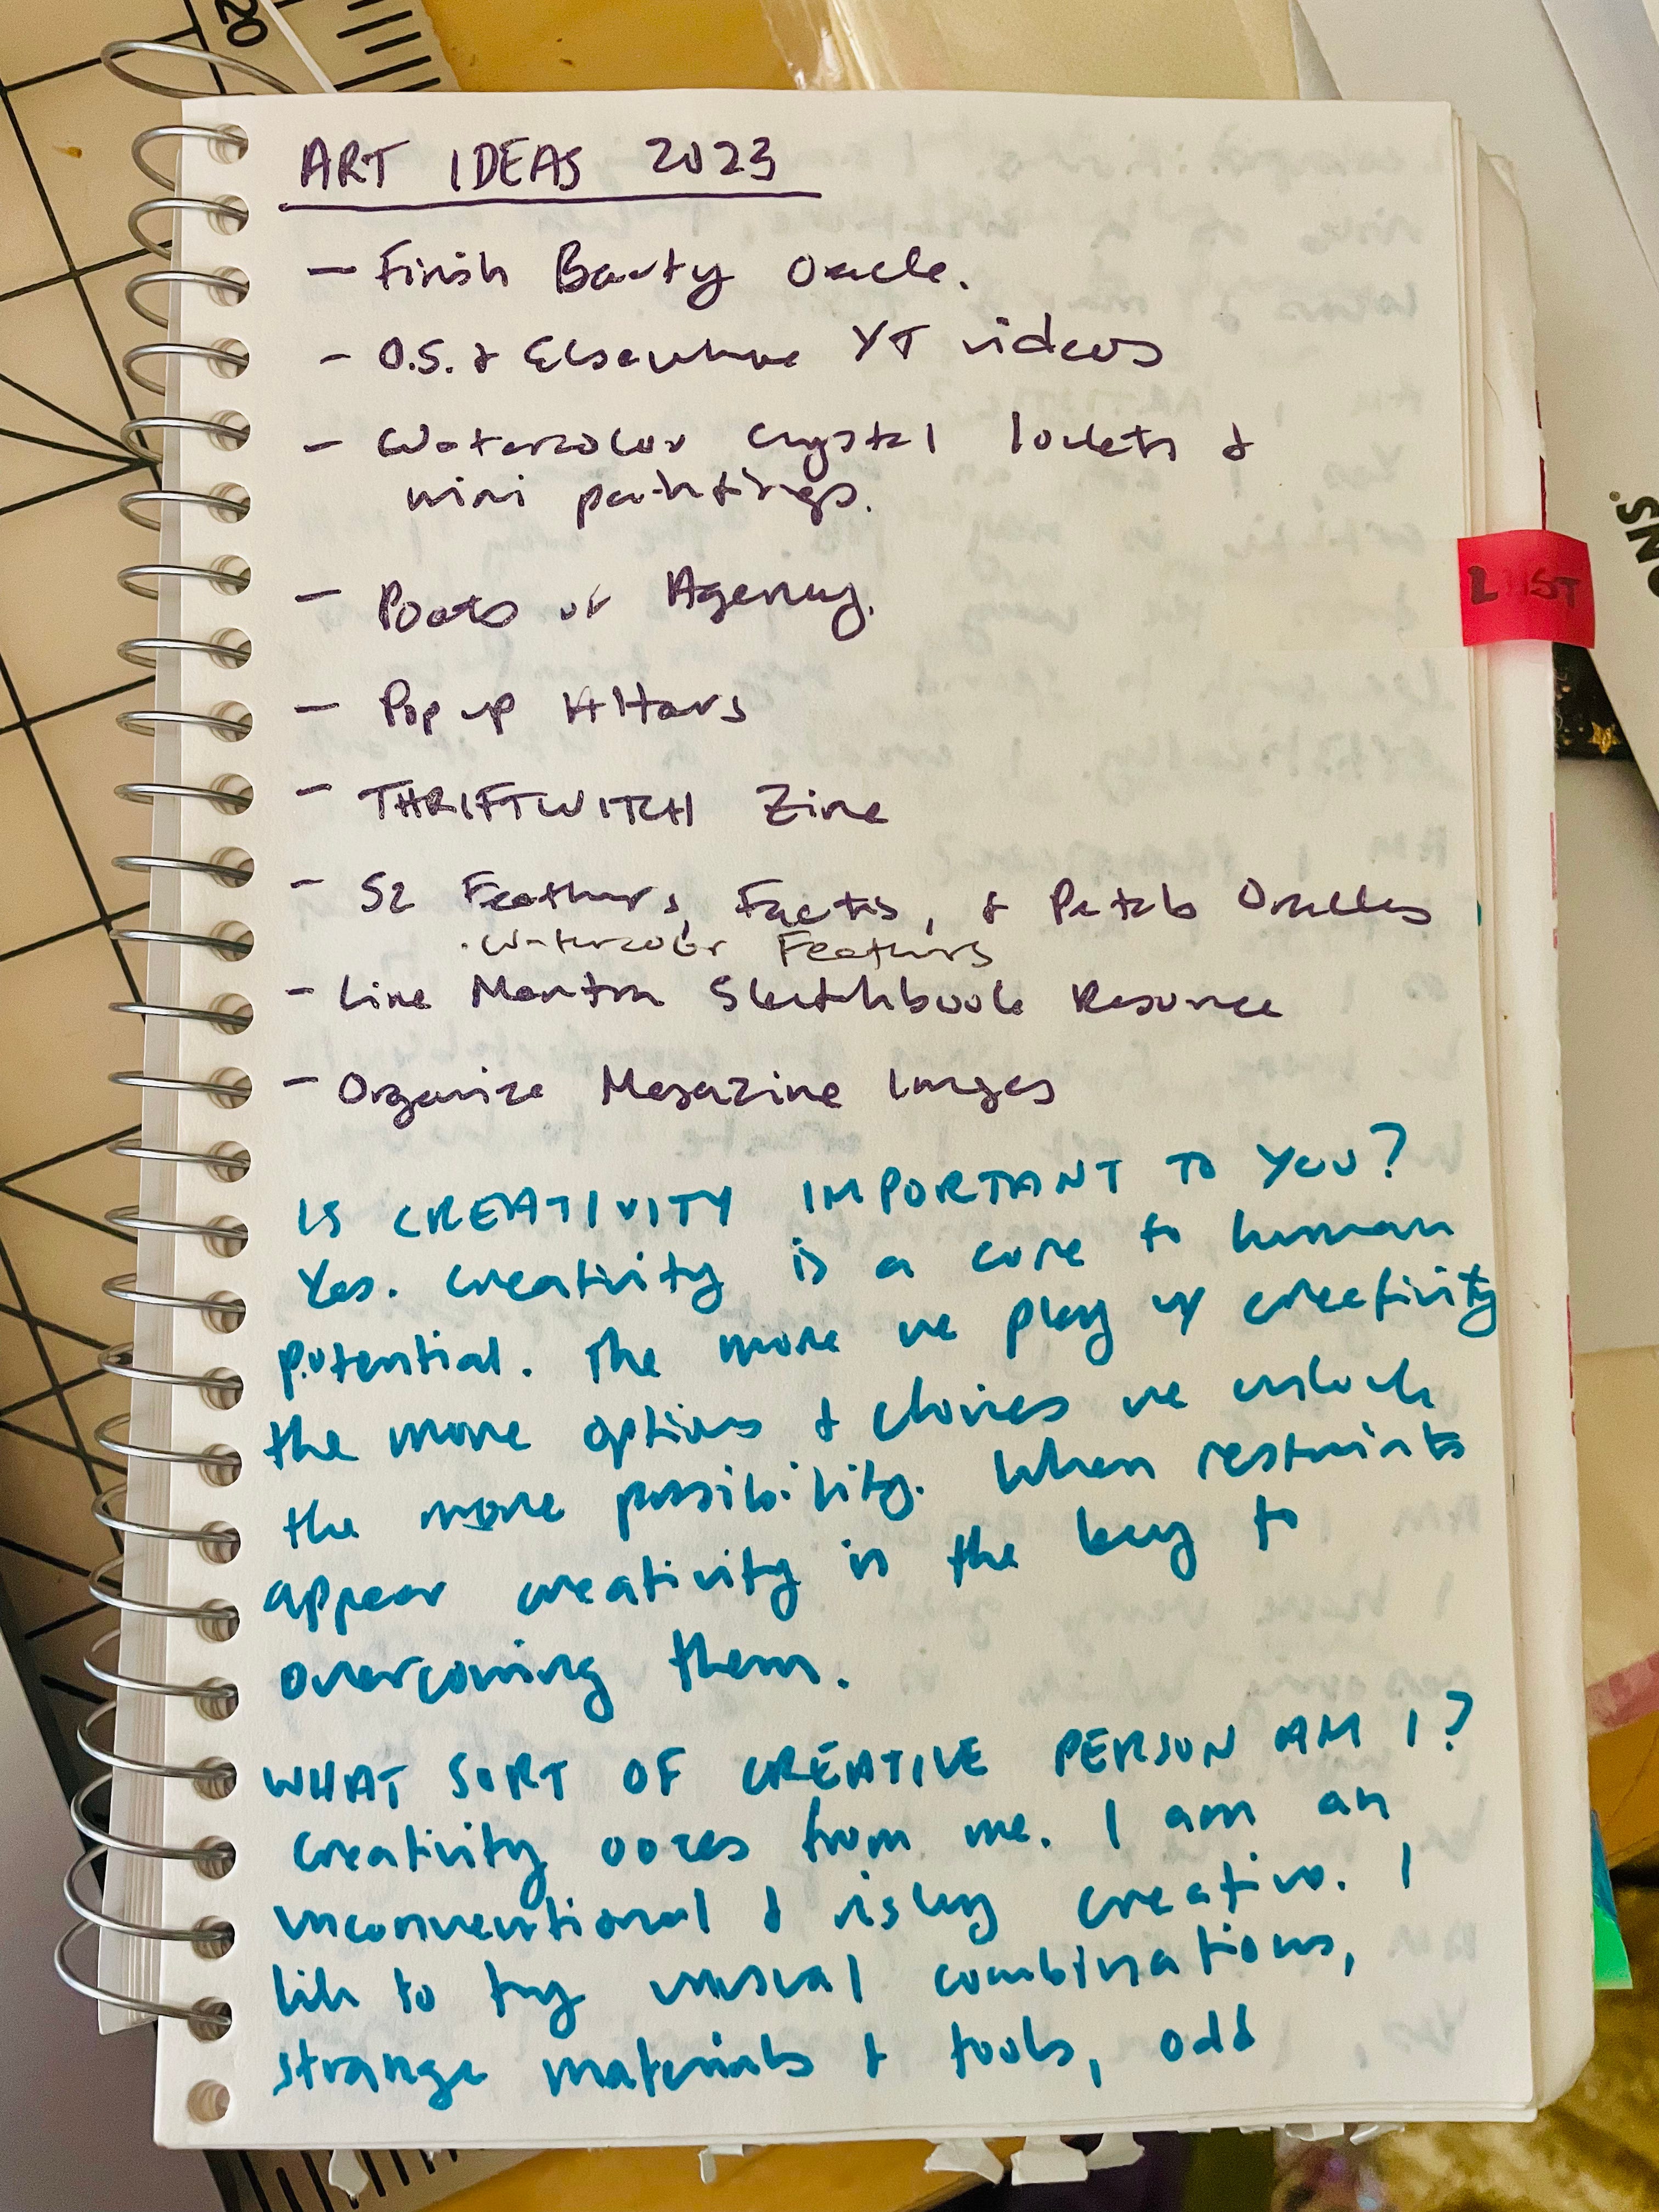 20
ART IDEAS 2023
- Finish Oracle.
- O.S. & Elsewhere YT videos
- Watercolor crystal lockets &
mini paintings.
- Poets of Agency.
- Pop up Altars
- THRIFTWITCH Zine
- 52 Feathers, Facets, & Petals Oracles
. Watercolor Feathers
- Line Mantra Sketchbook Resource
- Organize Magazine Images
LIST
NS.
IS CREATIVITY IMPORTANT TO YOU?
Yes. Creativity is a core to human
potential. The more we play w/ creativity
the more options & choices we unlock
the more possibility. When restraints
appear creativity is the key to
overcoming them.
WHAT SORT OF CREATIVE PERSON AM I?
Creativity oozes from me. I am an
unconventional & risky creative. I
like to try unusual combinations,
strange materials & tools, odd